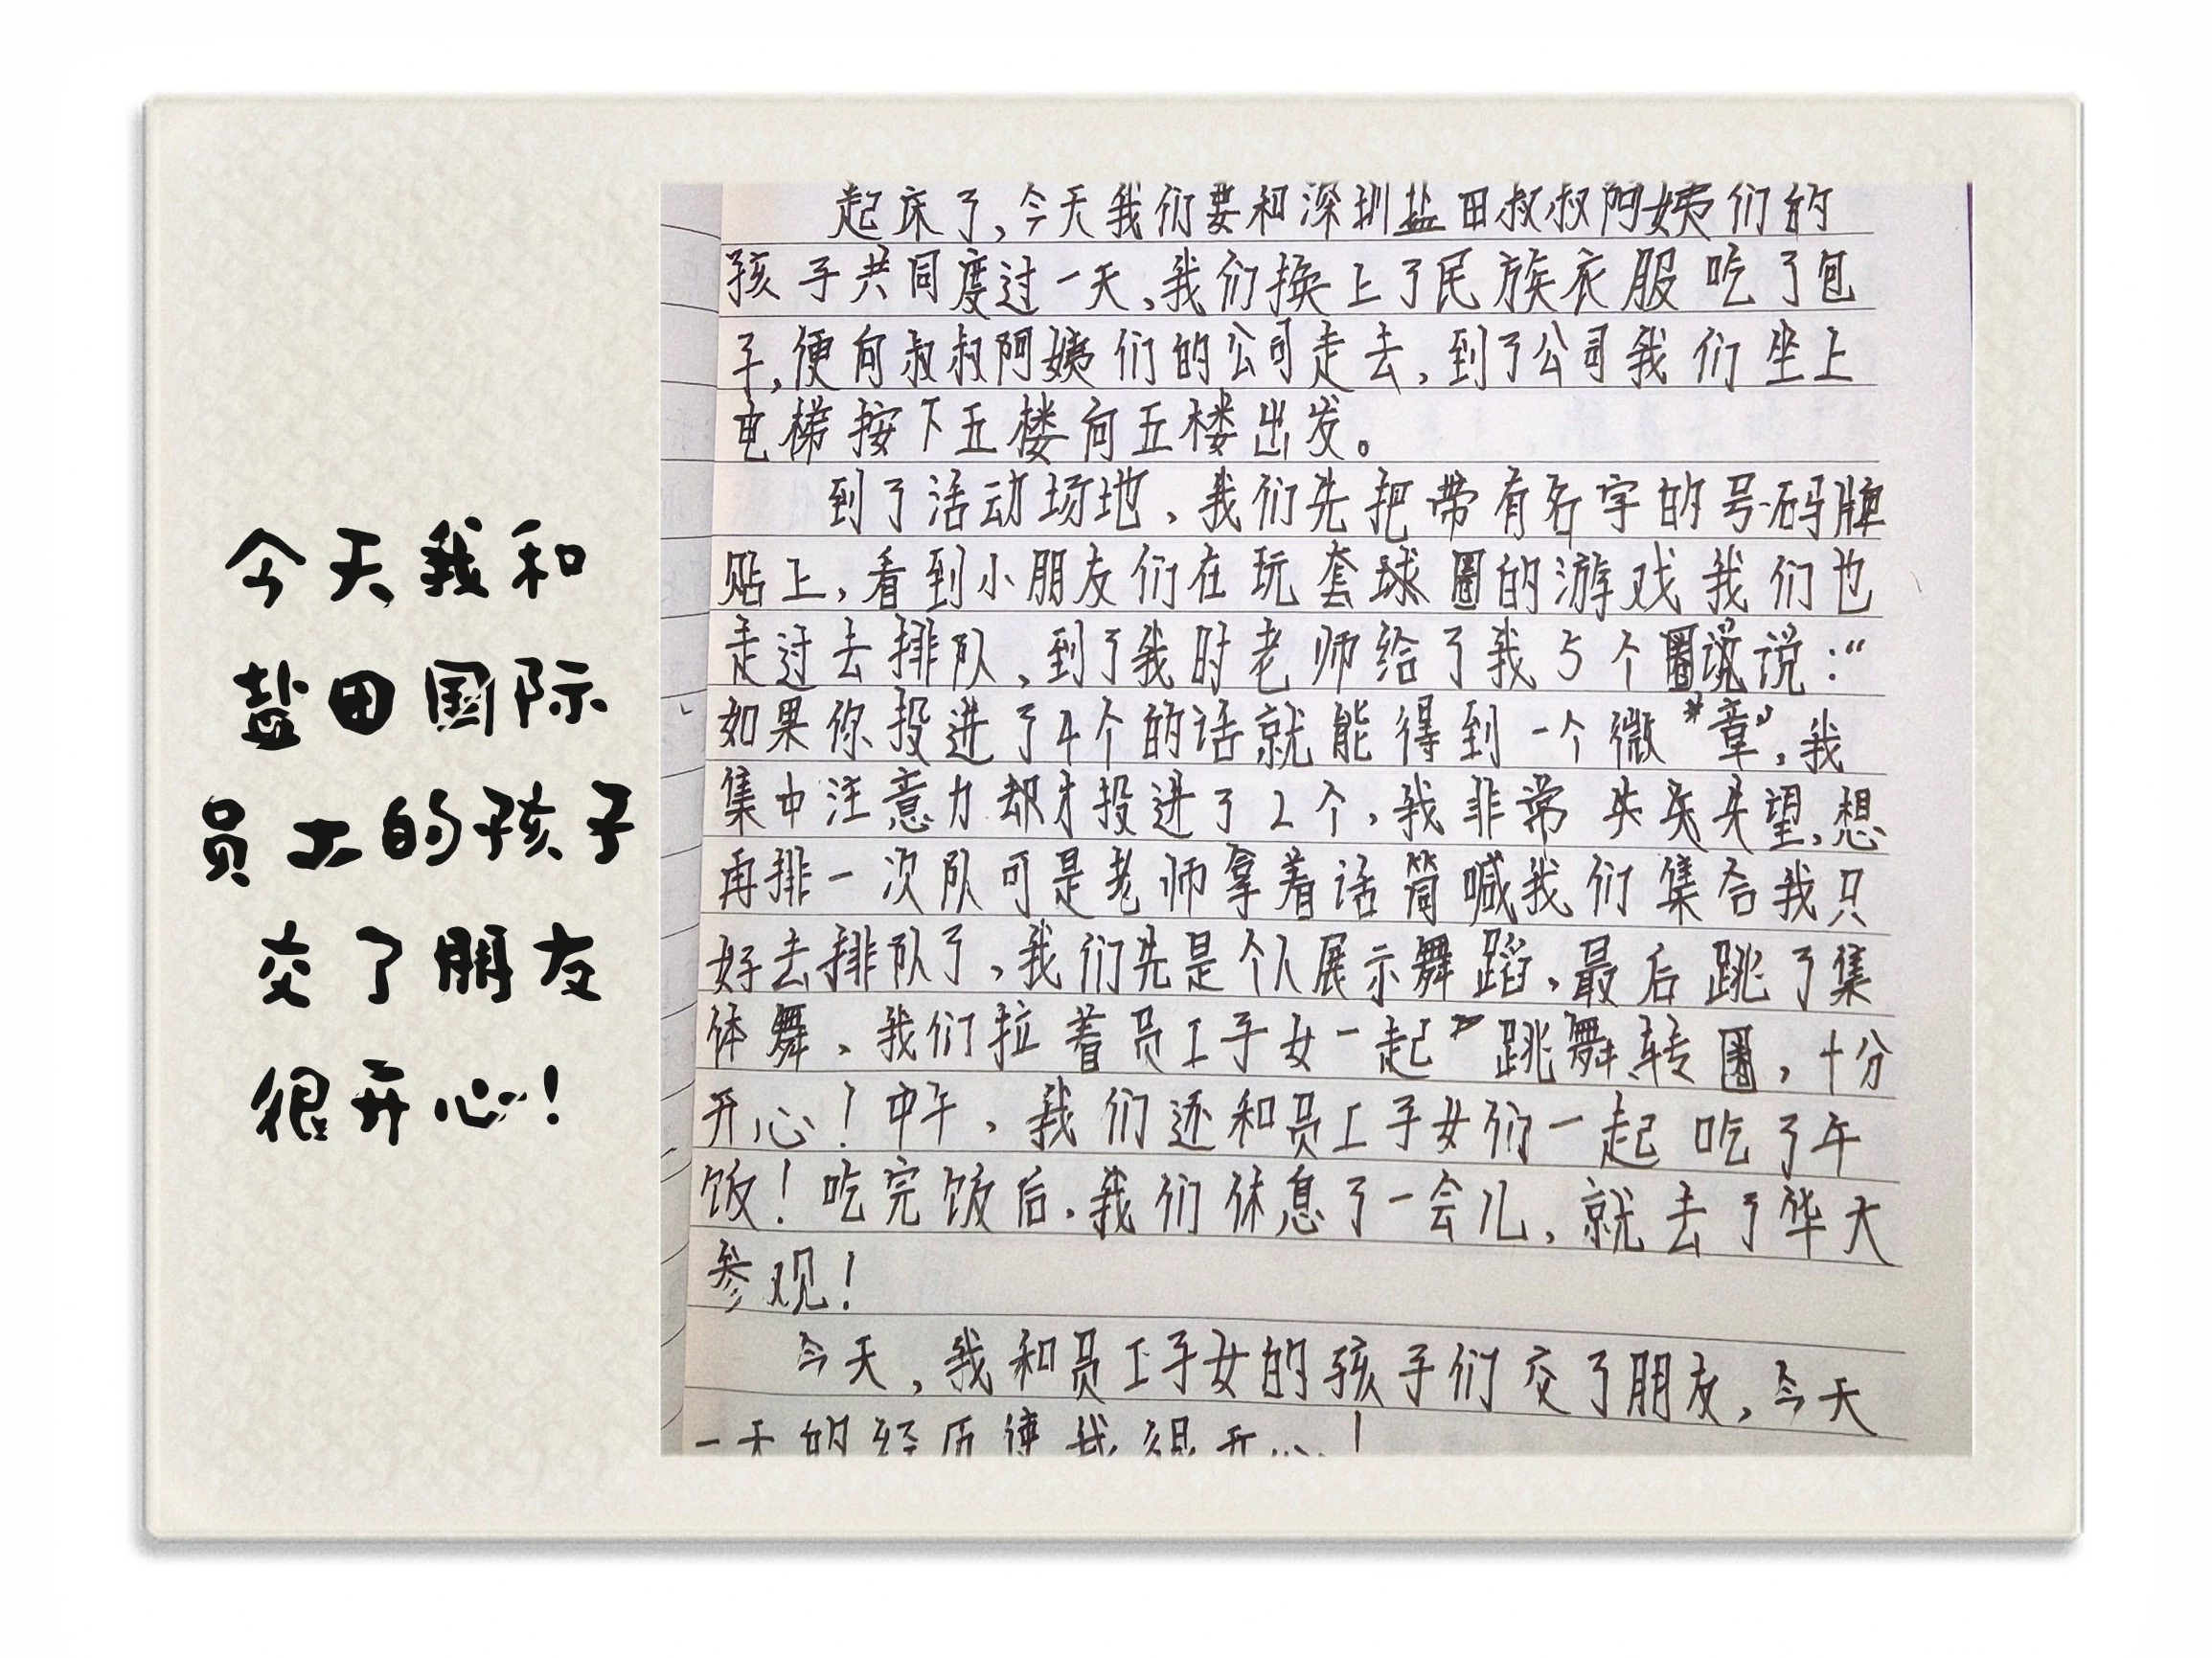 今天我和
盐田国际
员工的孩子
交了朋友
很开心!
起床了,今天我们要和深圳盐田叔叔阿姨们的
孩子共同度过一天、我们换上了民族衣服吃了包
子,便向叔叔阿姨们的公司走去,到了公司我们坐上
电梯按下五楼向五楼出发。
到了活动场地、我们先把带有名字的号码牌
贴上,看到小朋友们在玩套球圈的游戏我们也
走过去排队,到了我时老师给了我5个圈说:“
如果你投进了4个的话就能得到一个微“章”,我
集中注意力却才投进了2个,我非常失望,想
再排一次队可是老师拿着话筒喊我们集合我只
好去排队了,我们先是个人展示舞蹈、最后跳了集
体舞、我们拉着员工子女一起跳舞、转圈,十分
开心!中午、我们还和员工子女们一起吃了午
饭!吃完饭后,我们休息了一会儿,就去了华大
参观!
今天,我和员工子女的孩子们交了朋友,今天
一天的经历使我很开心!